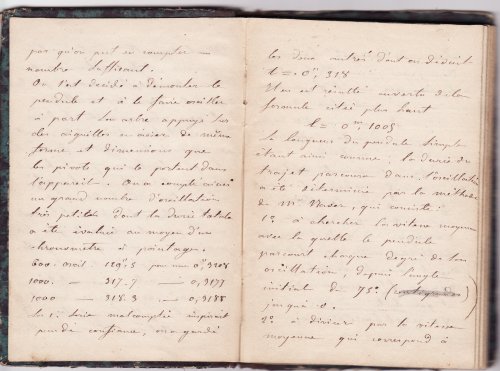 pas qu'on put en compter un
nombre suffisant.
On s'est décidé à démonter le
pendule et à le faire osciller
à part son arbre appuyé sur
des aiguilles en acier de même
forme et dimensions que
les pivots qui le portent dans
l'appareil. On a compté ainsi
un grand nombre d'oscillations
très petites dont la durée totale
a été évaluée au moyen d'un
chronomètre à pointage.
600 oscil. 192",5 par une 0",3208
1000. — 317.7 — 0,3177
1000 — 318.3 — 0,3188
La 1e série mal comptée inspirait
peu de confiance, on a gardé
les deux autres dont on déduit
t = 0",318
Il en est résulté en vertu de la
formule citée plus haut
l = 0m,1005
La longueur du pendule simple
étant ainsi connue, la durée du
trajet parcouru dans l'oscillation
a été déterminée par la méthode
de Mr qui consiste:
1º à chercher la vitesse moyenne
avec laquelle le pendule
parcourt chaque degré de son
oscillation, depuis l'angle
initial de 75º
jusqu'à 0.
2º à diviser par la vitesse
moyenne qui correspond à